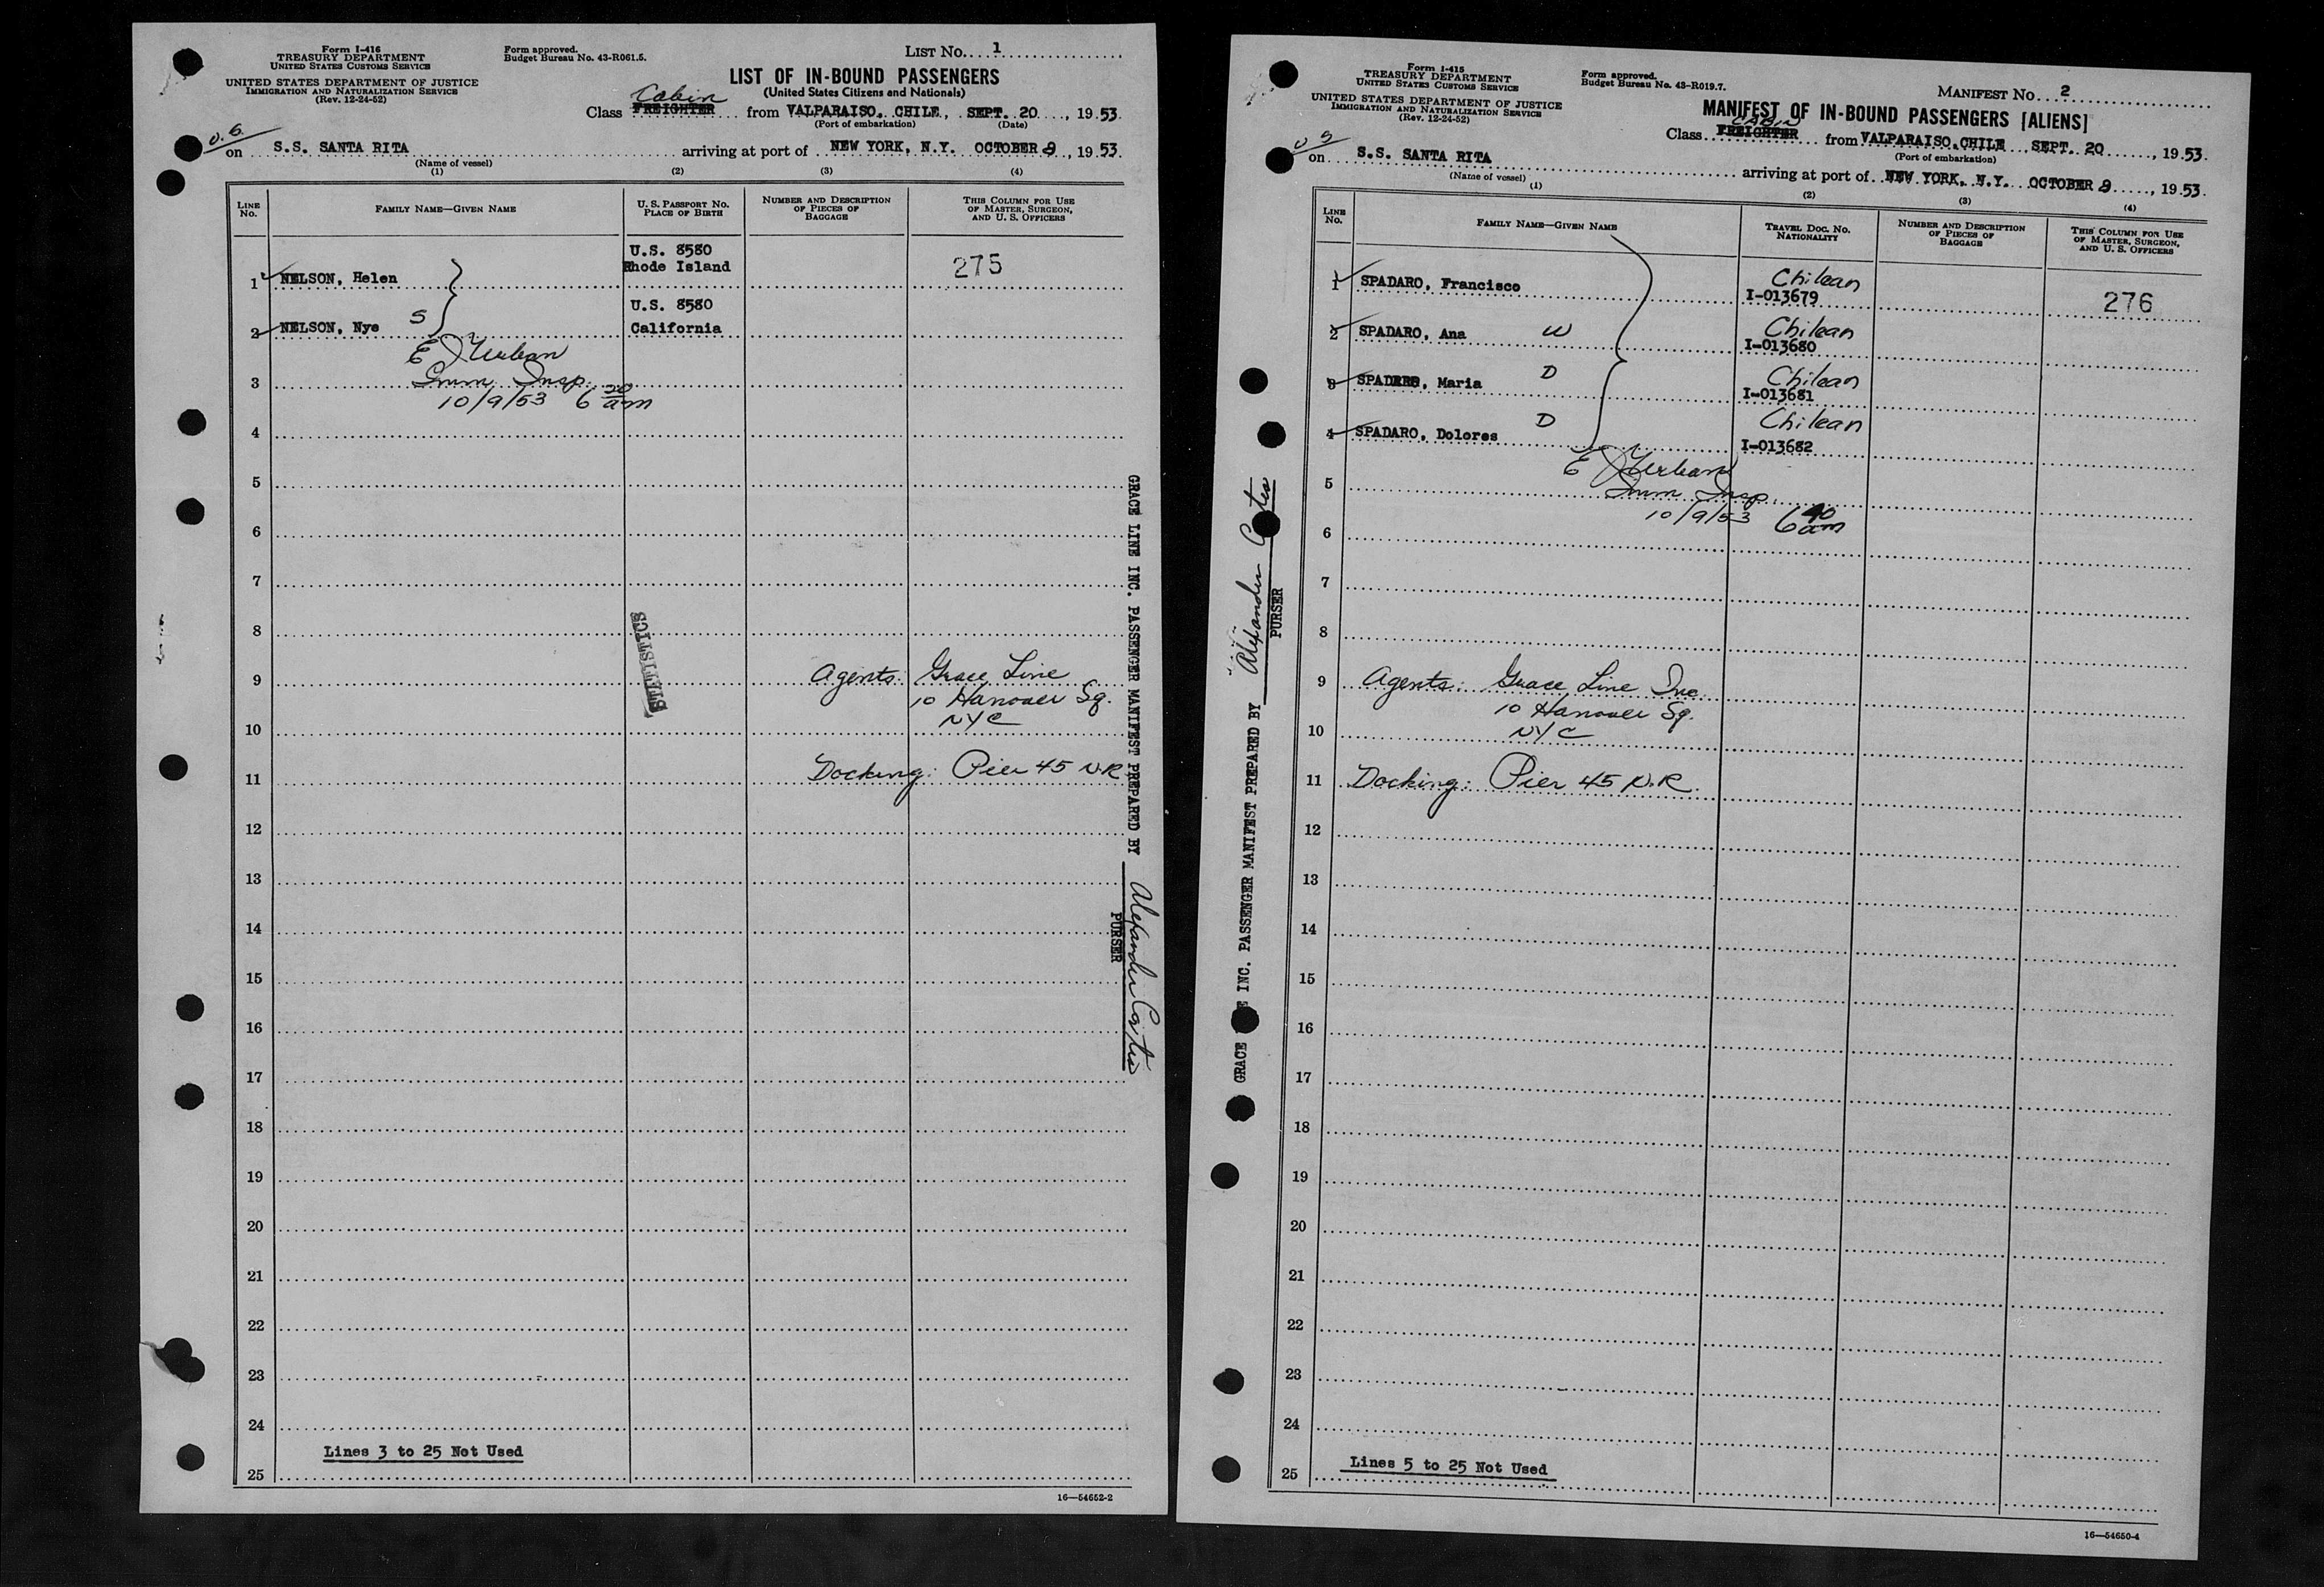 Form I-416
TREASURY DEPARTMENT
UNITED STATES CUSTOMS SERVICE
UNITED STATES DEPARTMENT OF JUSTICE
IMMIGRATION AND NATURALIZATION SERVICE
(Rev. 12-24-52)
Form approved.
Budget Bureau No. 43-R061.5.
LIST No. 1
LIST OF IN-BOUND PASSENGERS
(United States Citizens and Nationals)
Cabin
Class FREIGHTER from VALPARAISO, CHILE, SEPT. 20, 1953.
(Port of embarkation) (Date)
on S.S. SANTA RITA arriving at port of NEW YORK, N.Y. OCTOBER 9, 1953.
(Name of vessel)
(1) (2) (3) (4)
LINE No.
FAMILY NAME—GIVEN NAME
U. S. PASSPORT No. PLACE OF BIRTH
NUMBER AND DESCRIPTION OF PIECES OF BAGGAGE
THIS COLUMN FOR USE OF MASTER, SURGEON, AND U. S. OFFICERS
U.S. 8580
1 NELSON, Helen Rhode Island 275
U.S. 8580
2 NELSON, Nye S California
3 Imm Insp.
10/9/53 6 20 am
4
5
6
7
8
STATISTICS
9 Agents: Grace Line
10 Hanover Sq.
10 NYC
11 Docking: Pier 45 N.R
12
13
14
15
16
17
18
19
20
21
22
23
24
Lines 3 to 25 Not Used
25
16—54652-2
GRACE LINE INC. PASSENGER MANIFEST PREPARED BY Alexander
PURSER
Form I-415
TREASURY DEPARTMENT
UNITED STATES CUSTOMS SERVICE
UNITED STATES DEPARTMENT OF JUSTICE
IMMIGRATION AND NATURALIZATION SERVICE
(Rev. 12-24-52)
Form approved.
Budget Bureau No. 43-R019.7.
MANIFEST No. 2
MANIFEST OF IN-BOUND PASSENGERS [ALIENS]
CABIN
Class FREIGHTER from VALPARAISO, CHILE SEPT. 20, 1953.
(Port of embarkation)
on S.S. SANTA RITA arriving at port of NEW YORK, N.Y. OCTOBER 9, 1953.
(Name of vessel)
(1) (2) (3) (4)
LINE No.
FAMILY NAME—GIVEN NAME
TRAVEL DOC. No. NATIONALITY
NUMBER AND DESCRIPTION OF PIECES OF BAGGAGE
THIS COLUMN FOR USE OF MASTER, SURGEON, AND U. S. OFFICERS
Chilean
1 SPADARO, Francisco I-013679 276
Chilean
2 SPADARO, Ana W I-013680
Chilean
3 SPADARO, Maria D I-013681
Chilean
4 SPADARO, Dolores D I-013682
5 Imm Insp.
10/9/53 6 40 am
6
7
8
9 Agents: Grace Line Inc.
10 Hanover Sq.
10 NYC
11 Docking: Pier 45 N.R.
12
13
14
15
16
17
18
19
20
21
22
23
24
Lines 5 to 25 Not Used
25
16—54650-4
GRACE INC. PASSENGER MANIFEST PREPARED BY Alexander
PURSER